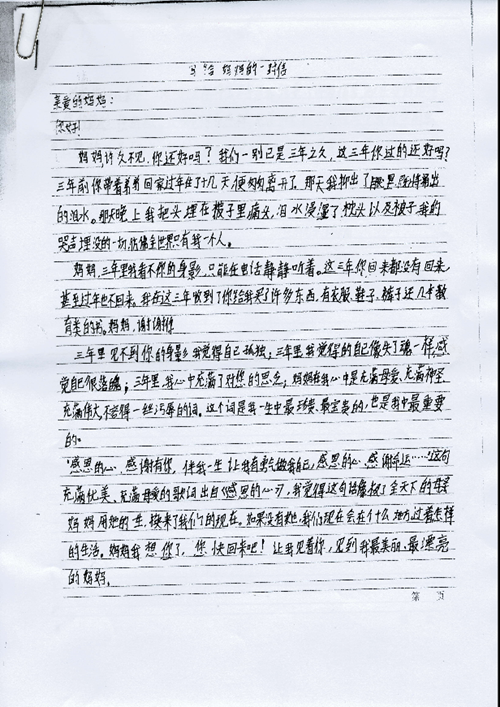 给妈妈的一封信
亲爱的妈妈：
您好！
妈妈许久不见，你还好吗？我们一别已是三年之久，这三年你过的还好吗？
三年前你带着弟弟回家过年在了十几天便匆匆离开了，那天我抑出了
的泪水。那天晚上我把头埋在被子里痛哭，泪水浸湿了枕头以及被子，我的
哭声埋没的一切，仿佛全世界只有我一个人。
妈妈，三年里我看不你的身影，只能在电话静静听着。这三年你回来都没有回来，
甚至过年也不回来。我在这三年收到了你给我买了许多东西，有衣服、鞋子、裤子还几本教
育类的书。妈妈，谢谢你
三年里见不到你的身影我觉得自己孤独；三年里我觉得的自己像失了魂一样，感
觉自己很落魄；三年里，我心中充满了对您的思念；妈妈在我心中是充满母爱、充满神圣
充满伟大不容得一丝污辱的词。这个词是我一生中最珍贵、最宝贵的，也是我中最重要
的。
“感恩的心，感谢有你，伴我一生让我有勇气做我自己，感恩的心，感谢命运……”这句
充满优美、充满母爱的歌词出自《感恩的心》，我觉得这句话像极了全天下的母亲
妈妈用她的一生，换来了我们的现在。如果没有她，我们现在会在什么地方过着怎样
的生活。妈妈我想你了，您快回来吧！让我见着你，见到我最美丽、最漂亮
的妈妈。
第 页